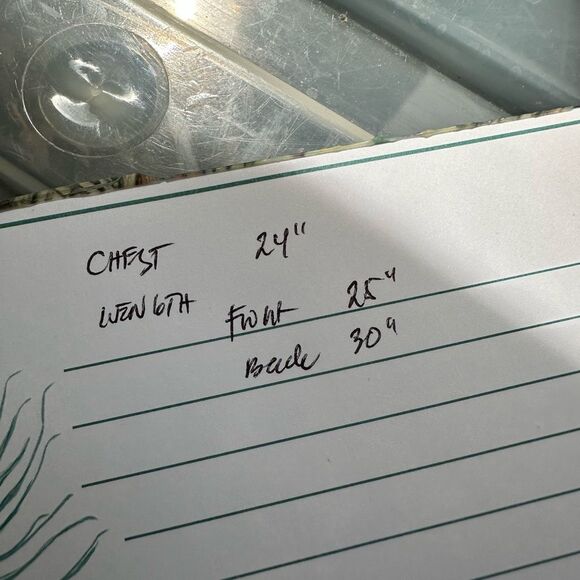 CHEST 24"
LENGTH Front 25"
Back 30"